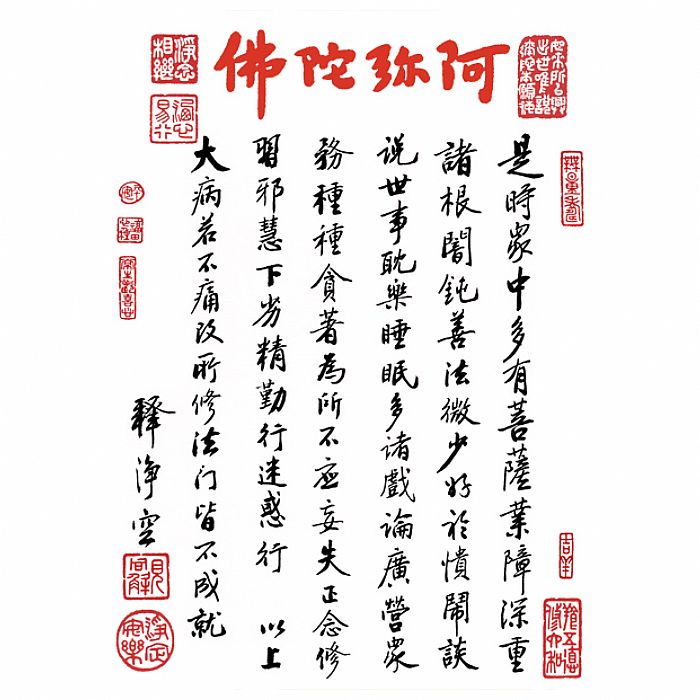 阿弥陀佛
是時眾中多有菩薩業障深重
諸根闇鈍善法微少好於憒鬧談
说世事耽樂睡眠多诸戲論廣營眾
務種種貪著為所不應妄失正念修
習邪慧下劣精勤行迷惑行 以上
大病若不痛改所修法门皆不成就
釋淨空
淨念相繼
吉羊